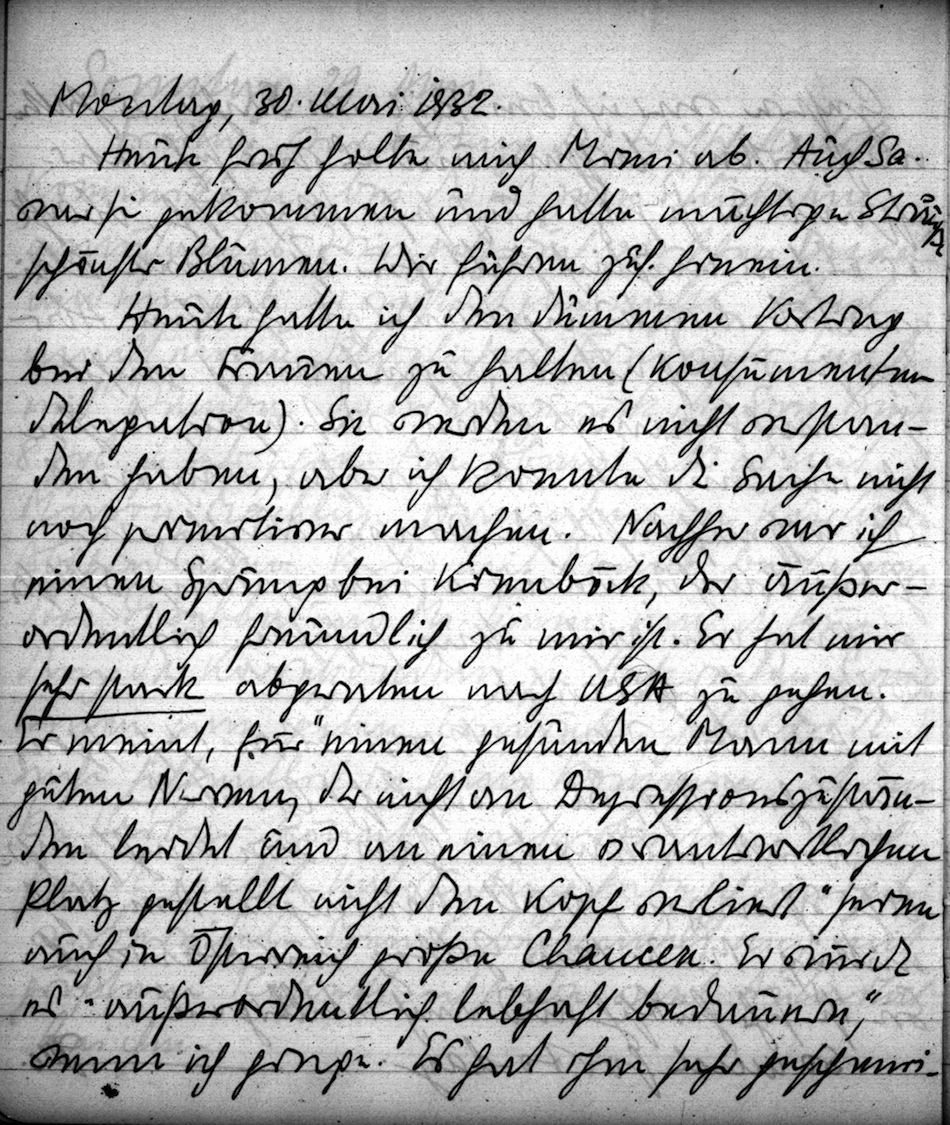 Montag, 30. Mai 1932.
Heute früh holte mich Mimi ab. Auch Sa.
war sie gekommen und hatte mächtige Sträuße
schönster Blumen. Wir fuhren zus. herein.
Heute hatte ich den dummen Vortrag
bei den Frauen zu halten (Konsumenten
delegation). Sie werden es nicht verstan-
den haben, aber ich konnte die Sache nicht
noch primitiver machen. Nachher war ich
einen Sprung bei Kienböck, der außer-
ordentlich freundlich zu mir ist. Er hat mir
sehr stark abgeraten nach USA zu gehen.
Er meint, für "einen gesunden Mann mit
guten Nerven, der nicht an Depressionszustän-
den leidet und an einen verantwortlichen
Platz gestellt nicht den Kopf verliert" seien
auch in Österreich große Chancen. Er würde
es "außerordentlich lebhaft bedauern,"
wenn ich ginge. Es hat ihm sehr geschmei-